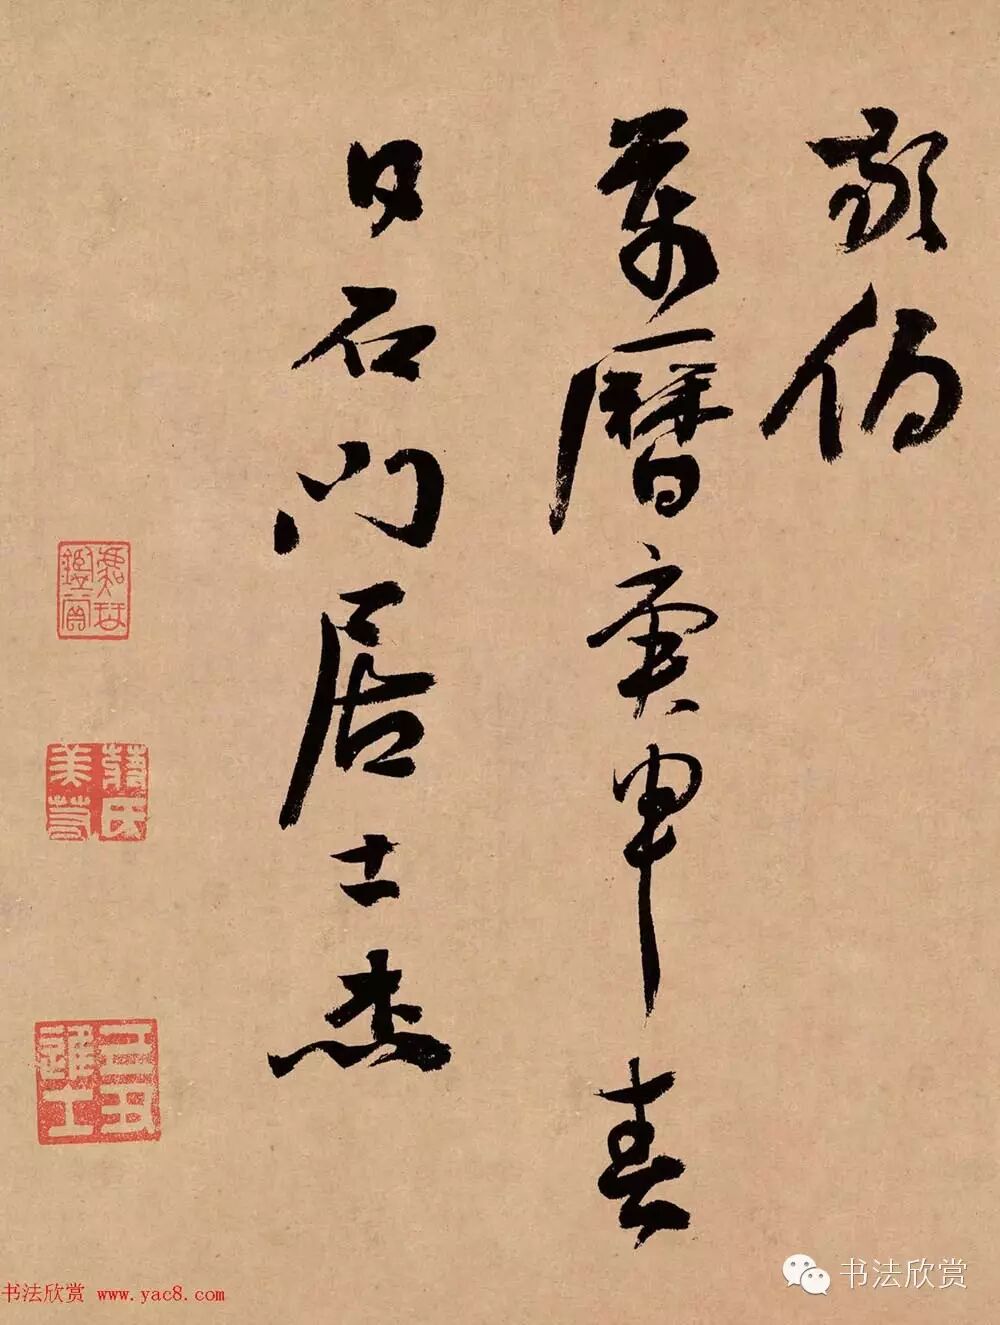 萬曆庚申春
日石門居士杰
丁丑進士
书法欣赏 www.yac8.com
书法欣赏